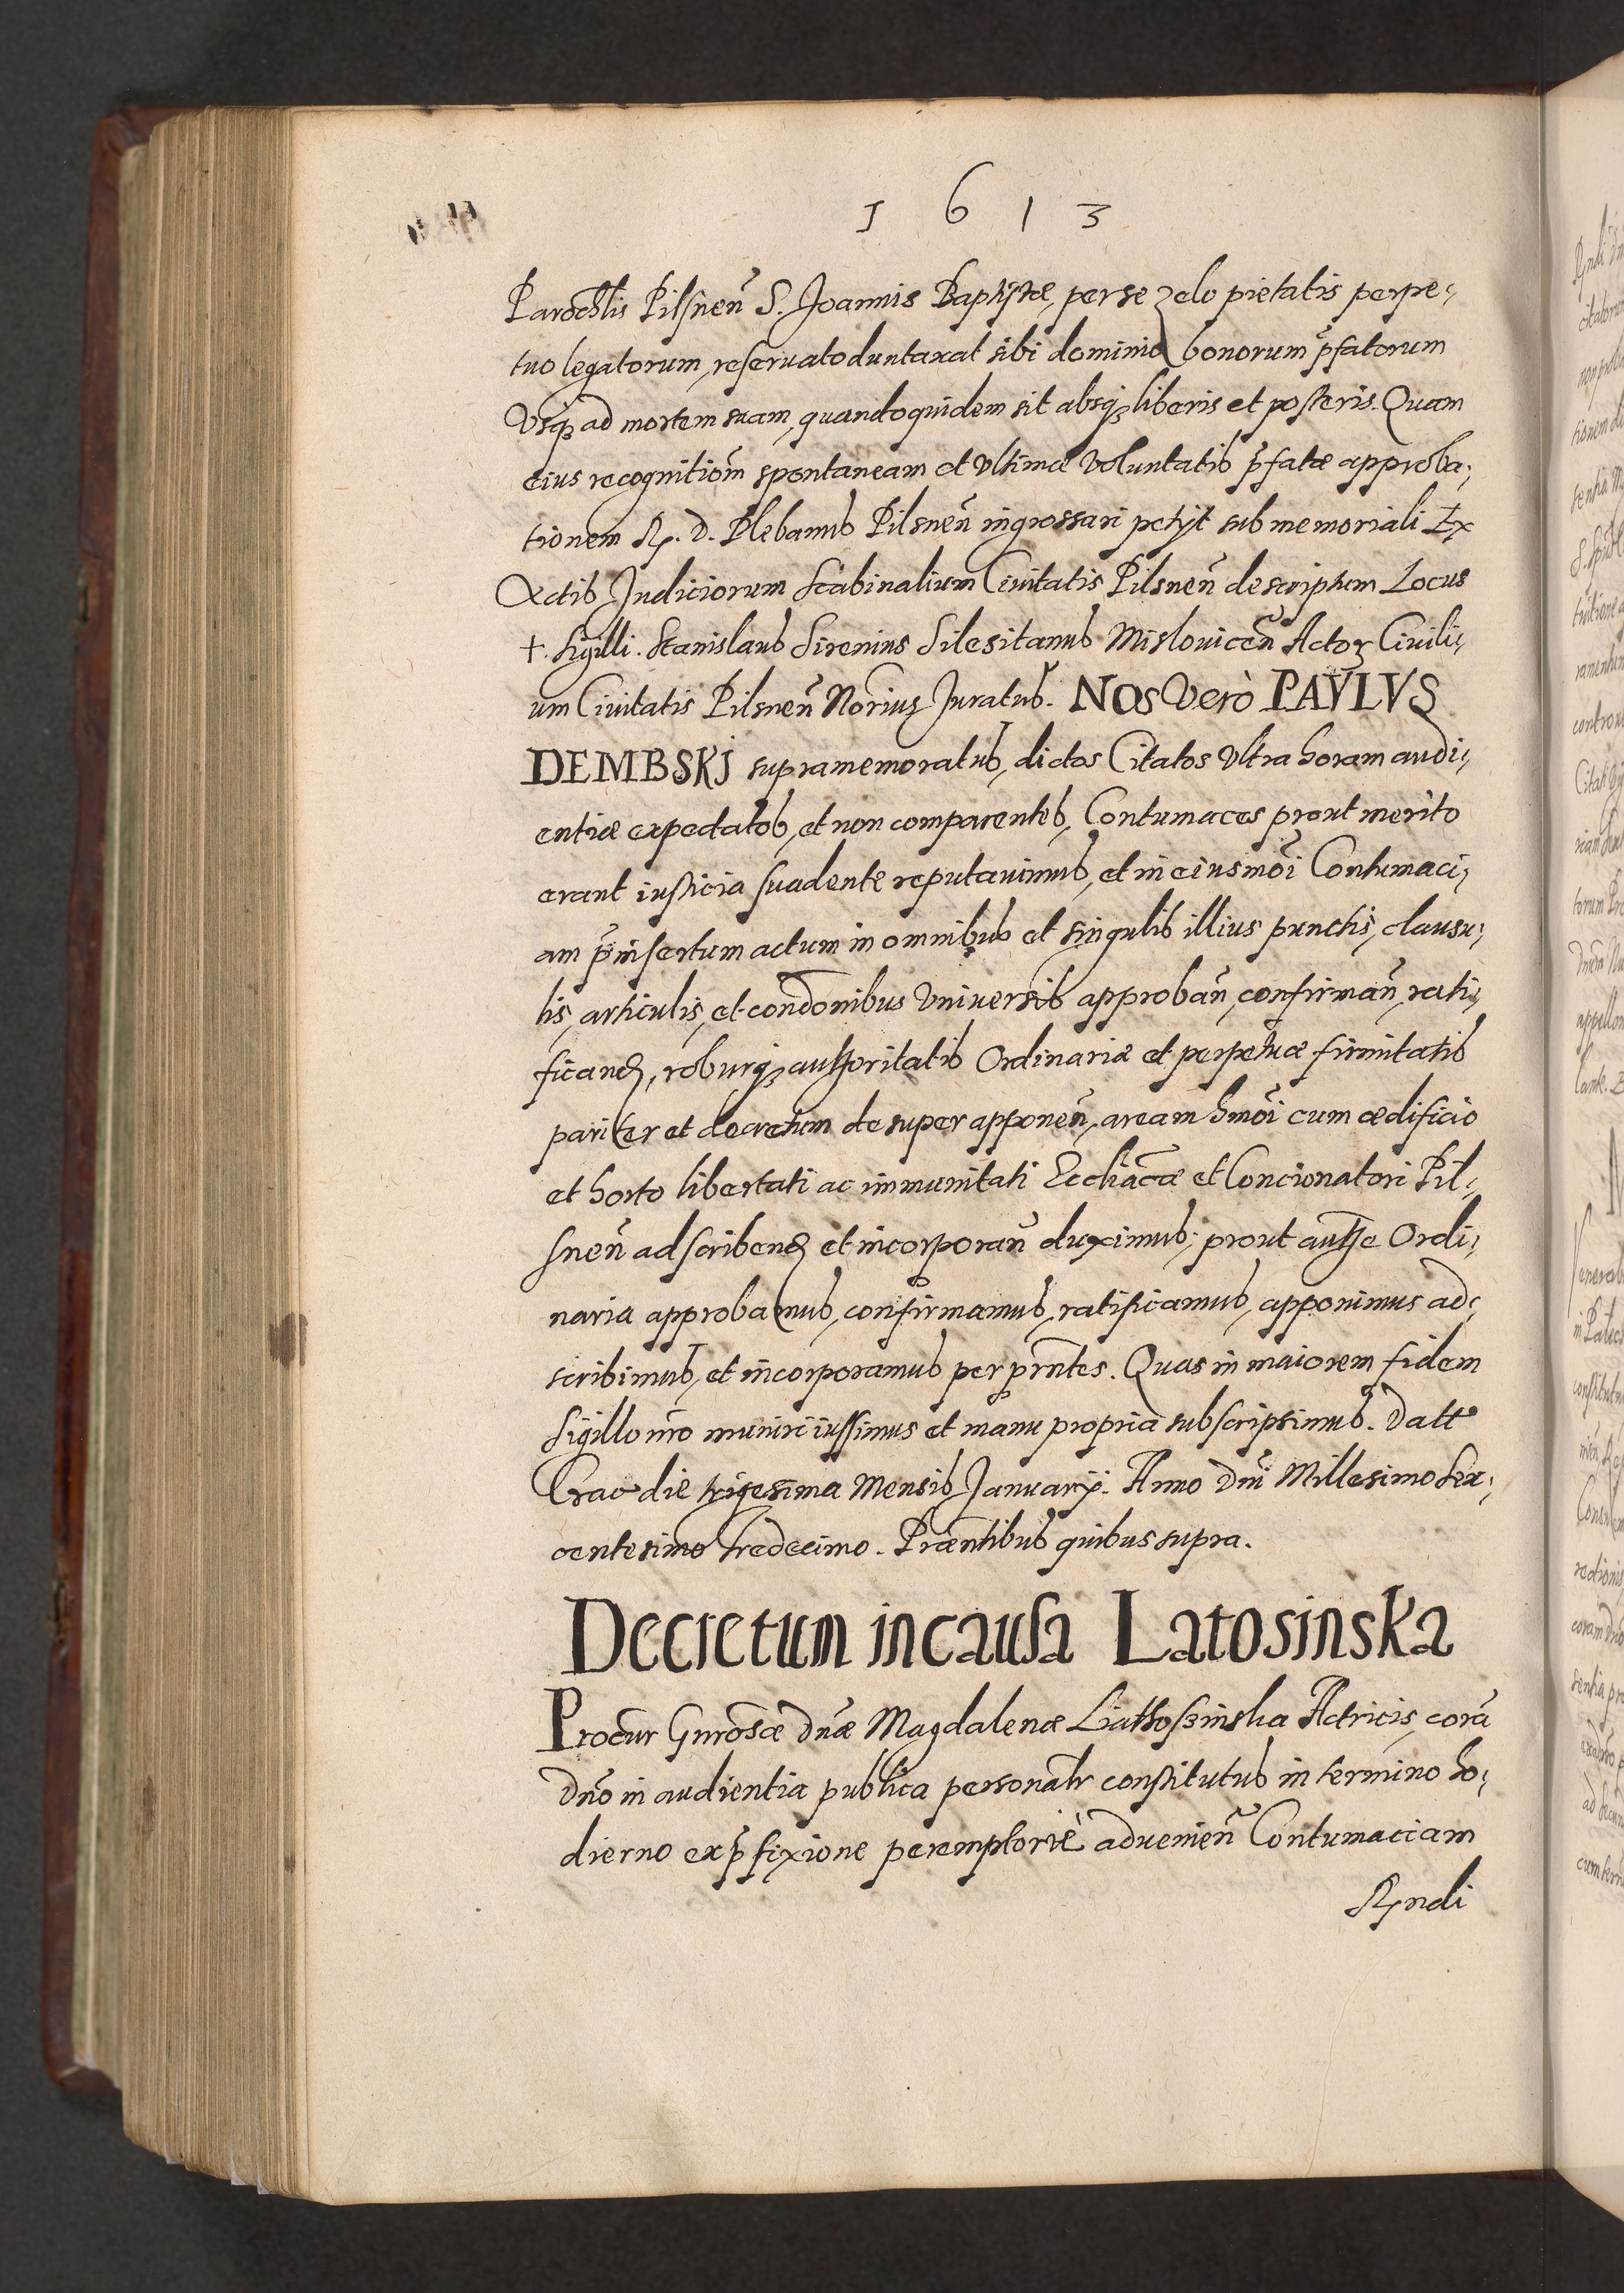 1 6 1 3
Parochlis Pilsnen̄ S. Joannis Baptistæ, per se zelo pietatis perpe-
tuo legatorum, reservato duntaxat sibi dominio bonorum p̄fatorum
Vsq₃ ad mortem suam, quandoquidem sit absq₃ liberis et posteris. Quam
eius recognitiōm spontaneam et vltimæ voluntatis p̄fatæ approba-
tionem R. D. Plebanus Pilsnen̄ ingrossari petijt sub memoriali Ex
Actis Judiciorum Scabinalium Ciuitatis Pilsnen̄ descriptum Locus
+ Sigilli. Stanislaus Sirenius Silesitanus Mislouicen̄ Actoꝝ Ciuili-
um Ciuitatis Pilsnen̄ Norius Juratus. NOS Verò PAVLVS
DEMBSKJ supramemoratus, dictos Citatos Vltra horam audi-
entiæ expectatos, et non comparentes, Contumaces prout merito
erant iusticia suadente reputauimus, et in eiusmōi Contumaci-
am p̄insertum actum in omnibus et singulis illius punctis, clausu-
lis, articulis, et condōnibus Vniuersis approban̄, confirman̄, rati-
ficand, roburq₃ authoritatis Ordinariæ et perpetuæ firmitatis
pariter et decretum desuper apponen̄, aream hmōi cum ædificio
et horto libertati ac immunitati Ecclīacæ et Concionatori Pil-
snen̄ adscribend et incorporan̄ duximus; prout authe Ordi-
naria approbamus, confirmamus, ratificamus, apponimus ad-
scribimus, et incorporamus per prn̄tes. Quas in maiorem fidem
Sigillo nr̄o muniri iussimus et manu propria subscripsimus. Datt
Crac die trigesima Mensis Januarij. Anno Dn̄i Millesimo Sex-
centesimo tredecimo. Præntibus quibus supra.
Decretum in causa Latosinska
Procur Gnrosæ Dn̄æ Magdalenæ Liathoszinska Actricis, corā
Dn̄o in audientia publica personalr constitutus in termino ho-
dierno ex p̄fixione peremptoriè aduenien̄ Contumaciam
Rndi